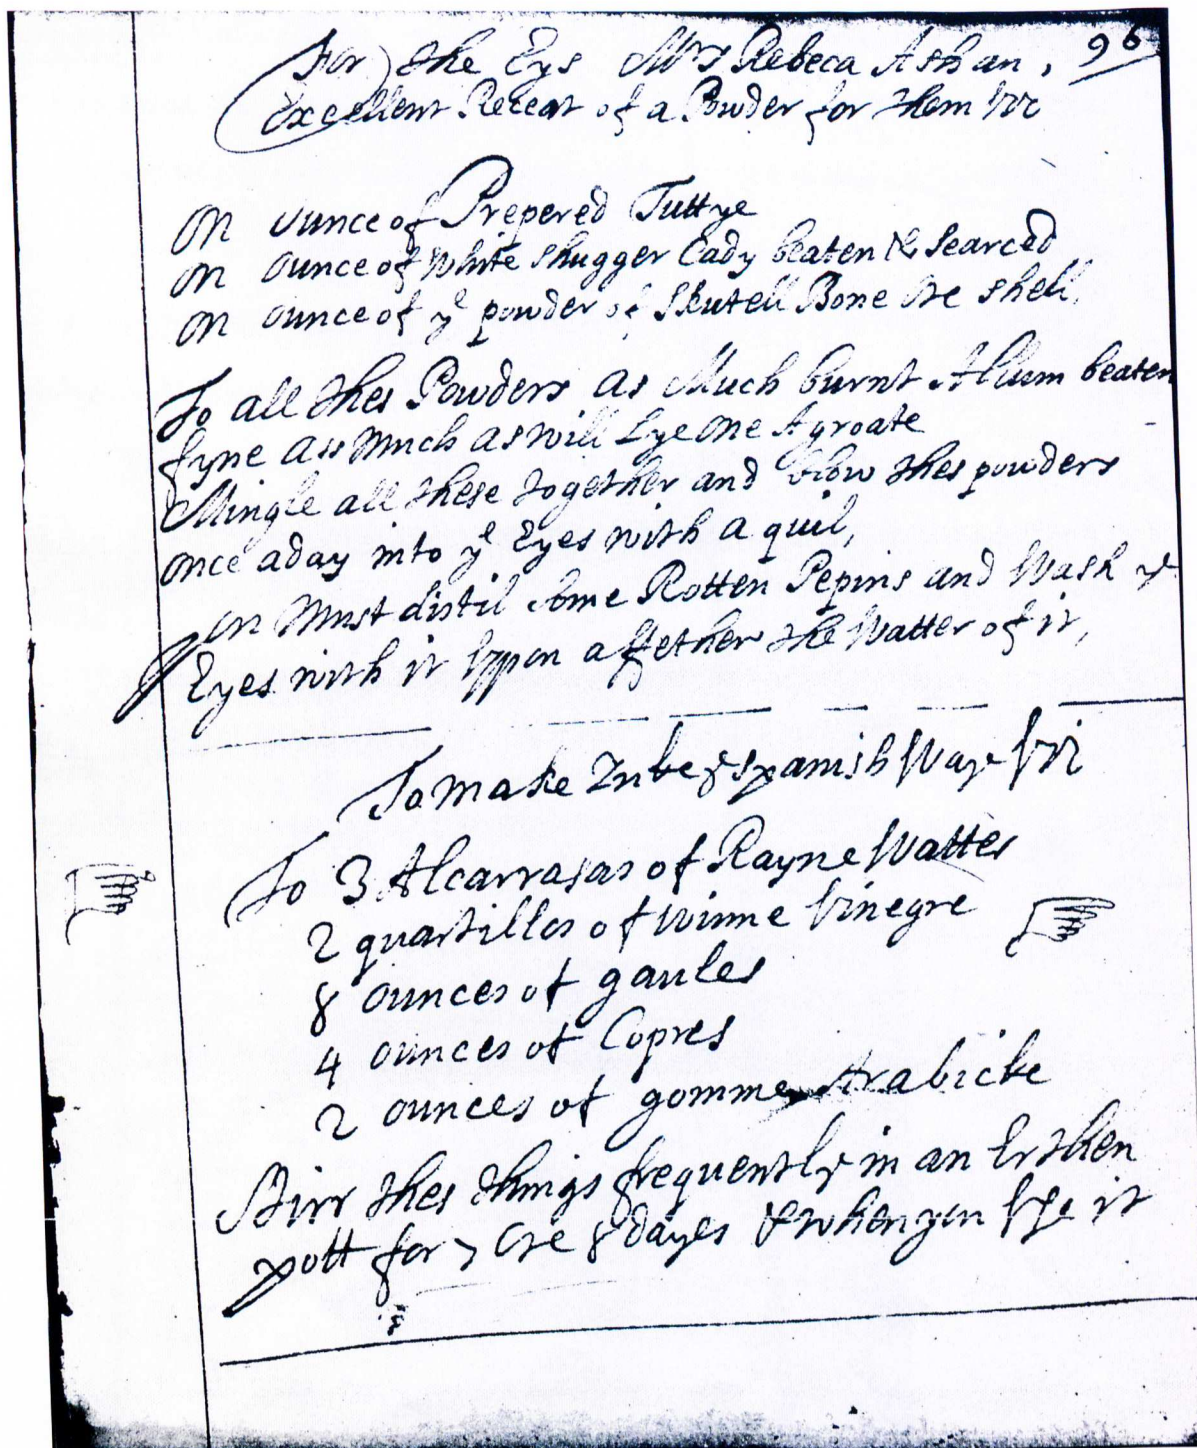 96
For the Eys Mrs Rebeca Ashan,
Excellent Receat of a Powder for them viz
On ounce of Prepered Tuttye
on ounce of White Shugger Cady beaten & Searced
on ounce of ye powder of Skutell Bone Ore shell,
To all thes Powders as Much burnt Allum beaten
fyne ass Much as will Lye one A groate
Mingle all these together and blow thes powders
once aday into ye Eyes with a quil,
you Must distil some Rotten Pepins and Wash ye
Eyes with it Vppon affether the Watter of it,
To make Inke ye spanish Waye viz
To 3 Alcarrasas of Rayne Watter
2 quartillos of winne Vinegre
8 ounces of gaules
4 ounces of Copres
2 ounces of gomme Arabicke
Stirr thes things frequently in an Erthen
pott for 7 Ore 8 dayes & when you Vse it